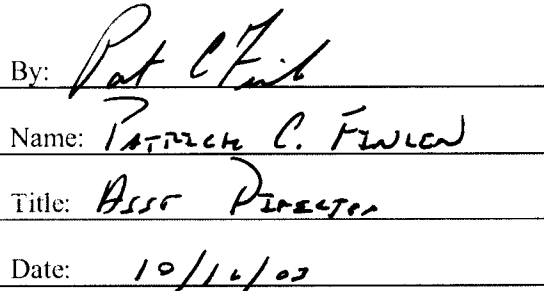 By: Pat C Finl
Name: PATRICK C. FINLEN
Title: ASST DIRECTOR
Date: 10/16/03